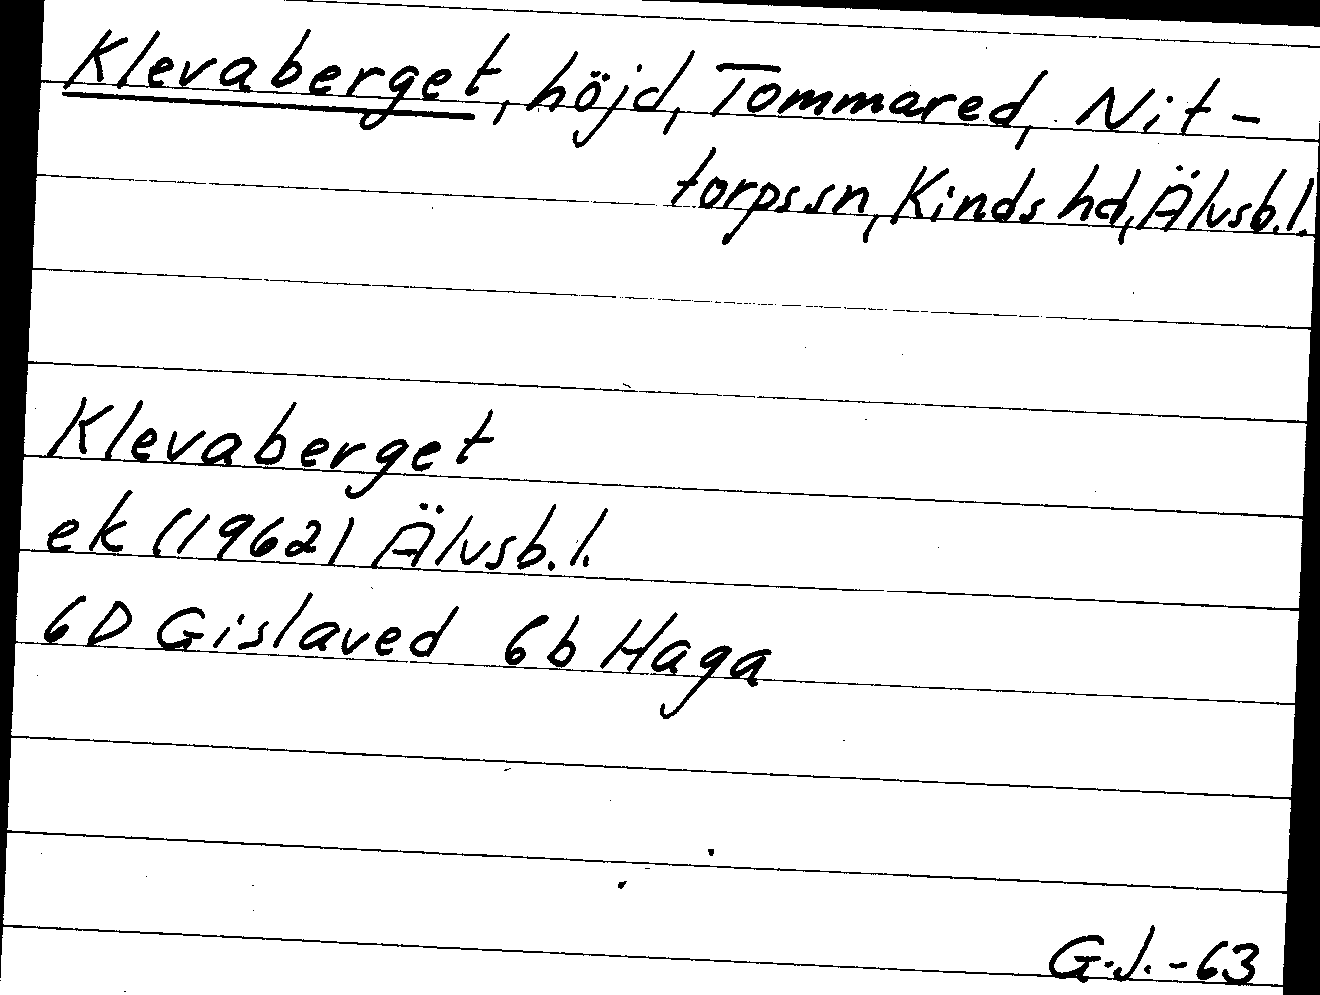 Klevaberget, höjd, Tommared, Nit-
torps sn, Kinds hd, Älvsb.l.
Klevaberget
ek (1962) Älvsb.l.
6D Gislaved 6b Haga
G.J.-63